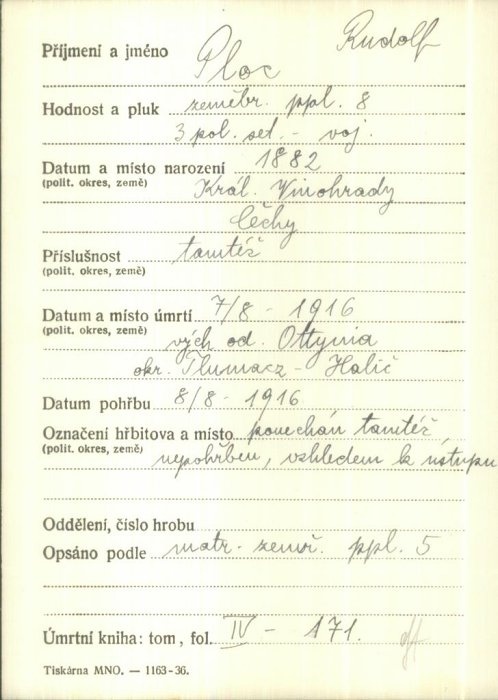 Příjmení a jméno Ploc Rudolf
Hodnost a pluk zeměbr. ppl. 8
3 pol. set. - voj.
Datum a místo narození 1882
(polit. okres, země) Král. Vinohrady
Čechy
Příslušnost tamtéž
(polit. okres, země)
Datum a místo úmrtí 7/8 - 1916
(polit. okres, země) vých od. Ottynia
okr. Tlumacz - Halič
Datum pohřbu 8/8 - 1916
Označení hřbitova a místo ponechán tamtéž
(polit. okres, země) nepohřben, vzhledem k ústupu
Oddělení, číslo hrobu
Opsáno podle matr. zemř. ppl. 5
Úmrtní kniha: tom, fol. IV - 171.
Tiskárna MNO. — 1163-36.